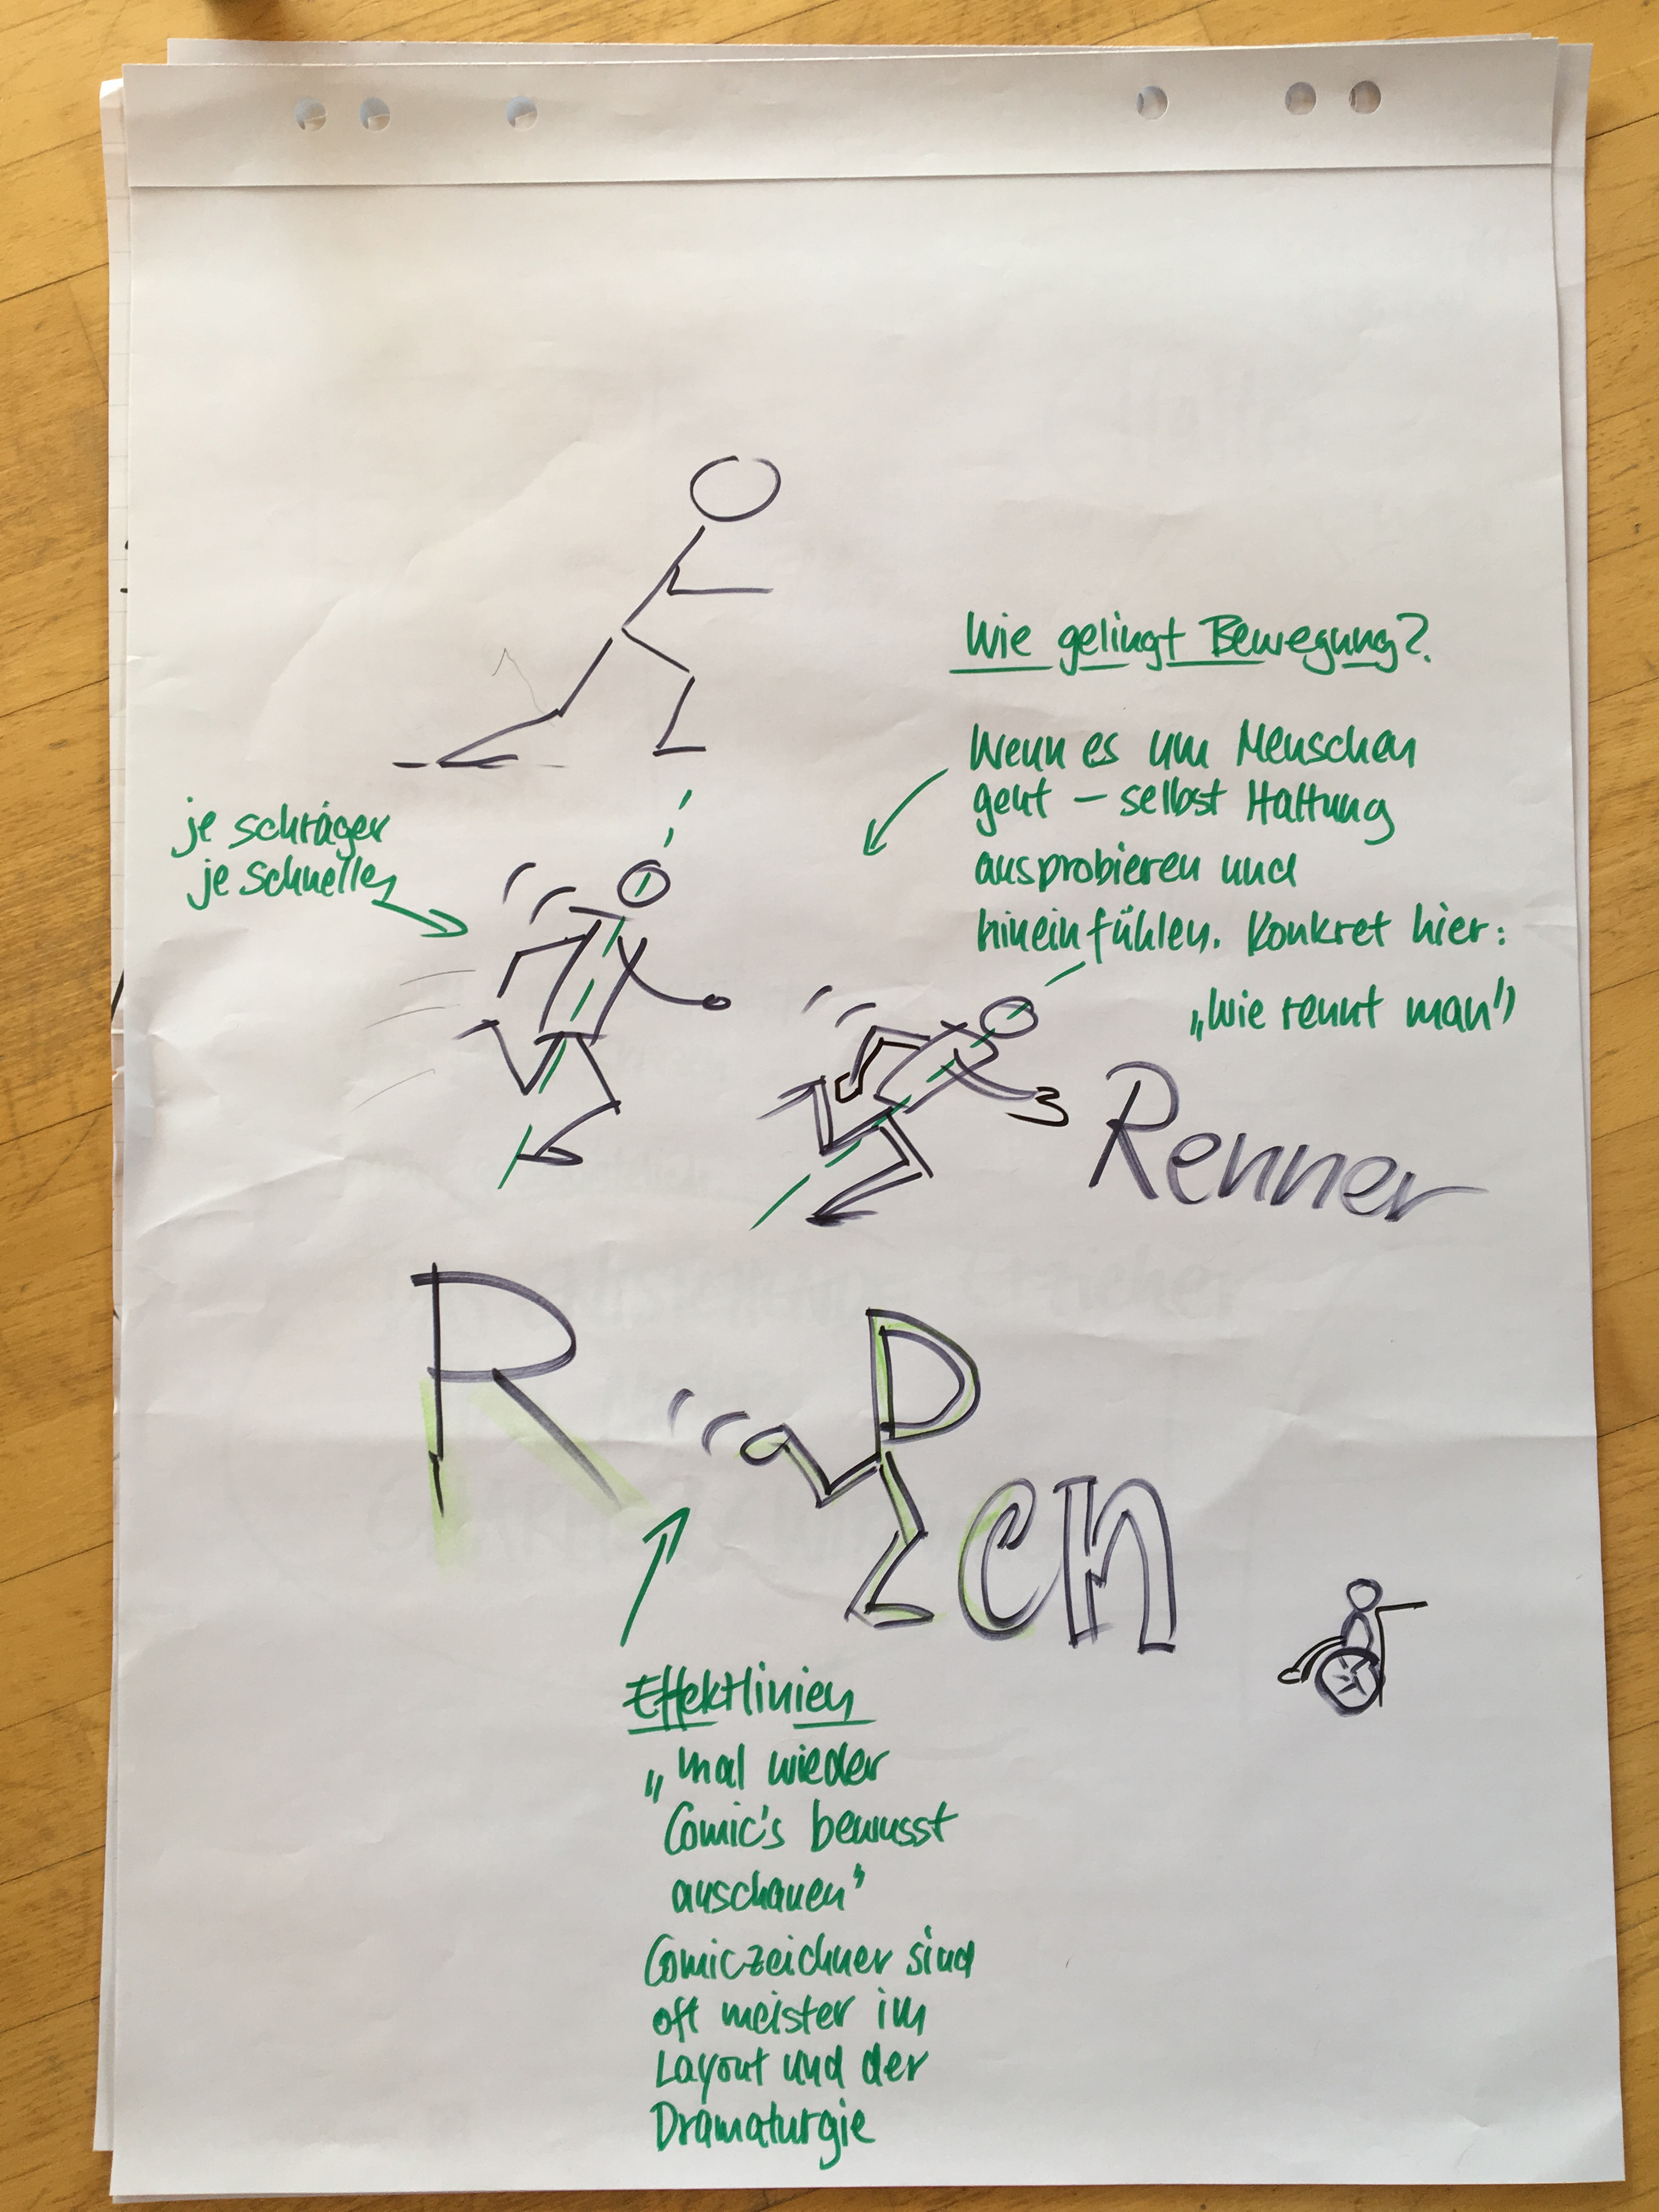 Wie gelingt Bewegung?
Wenn es um Menschen
geht – selbst Haltung
ausprobieren und
hineinfühlen. Konkret hier:
„Wie rennt man"
je schräger
je schneller
Renner
R
R en
Effektlinien
„mal wieder
Comic's bewusst
anschauen"
Comiczeichner sind
oft meister im
Layout und der
Dramaturgie